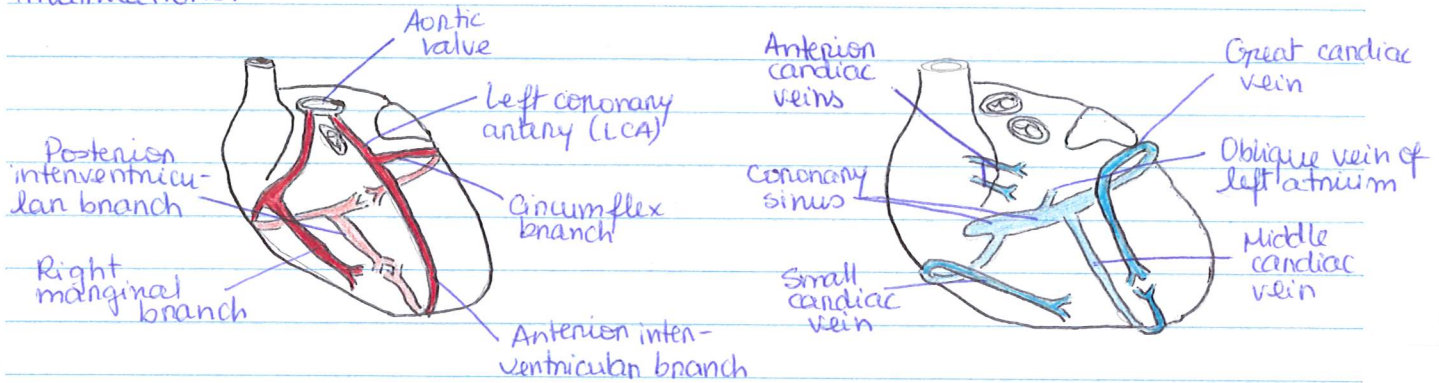 Aortic
valve
Left coronary
artery (LCA)
Posterior
interventricu-
lar branch
Circumflex
branch
Right
marginal
branch
Anterior inter-
ventricular branch
Anterior
cardiac
veins
Great cardiac
vein
Coronary
sinus
Oblique vein of
left atrium
Small
cardiac
vein
Middle
cardiac
vein